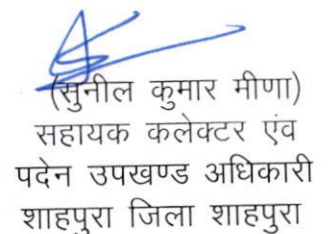 (सुनील कुमार मीणा)
सहायक कलेक्टर एंव
पदेन उपखण्ड अधिकारी
शाहपुरा जिला शाहपुरा